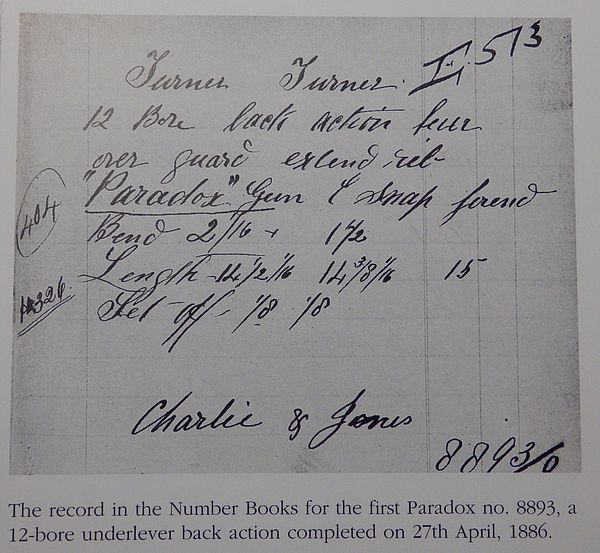 Turner Turner. II 573
12 Bore back action lever
over guard extend rib
"Paradox" Gun & snap forend
404
Bend 2 1/16 1 1/2
Length 14 1/2 1/16 14 3/8 1/16 15
326
Set off 1/8 1/8
Charlie & Jones
8893/0
The record in the Number Books for the first Paradox no. 8893, a
12-bore underlever back action completed on 27th April, 1886.